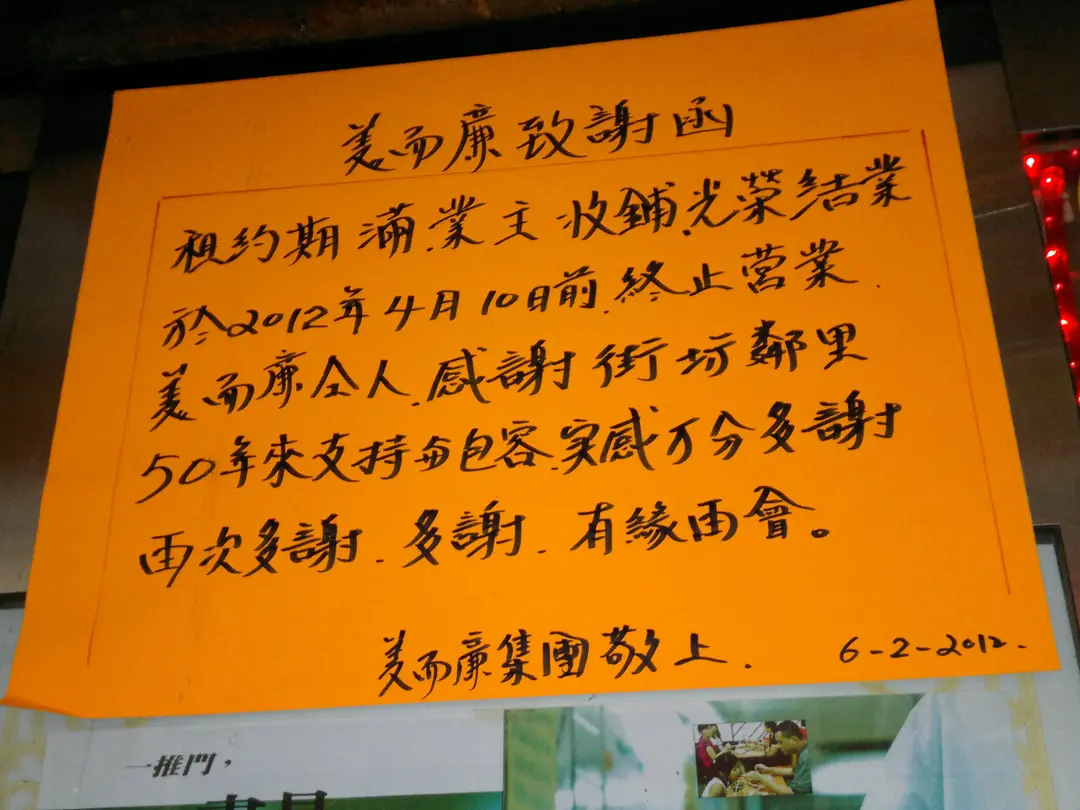 美而廉致謝函
租約期滿.業主收鋪.光榮結業
於2012年4月10日前.終止营業.
美而廉仝人.感謝街坊鄰里
50年來支持与包容.実感万分多謝
再次多謝.多謝.有緣再會。
美而廉集團敬上.
6-2-2012.
一推門，